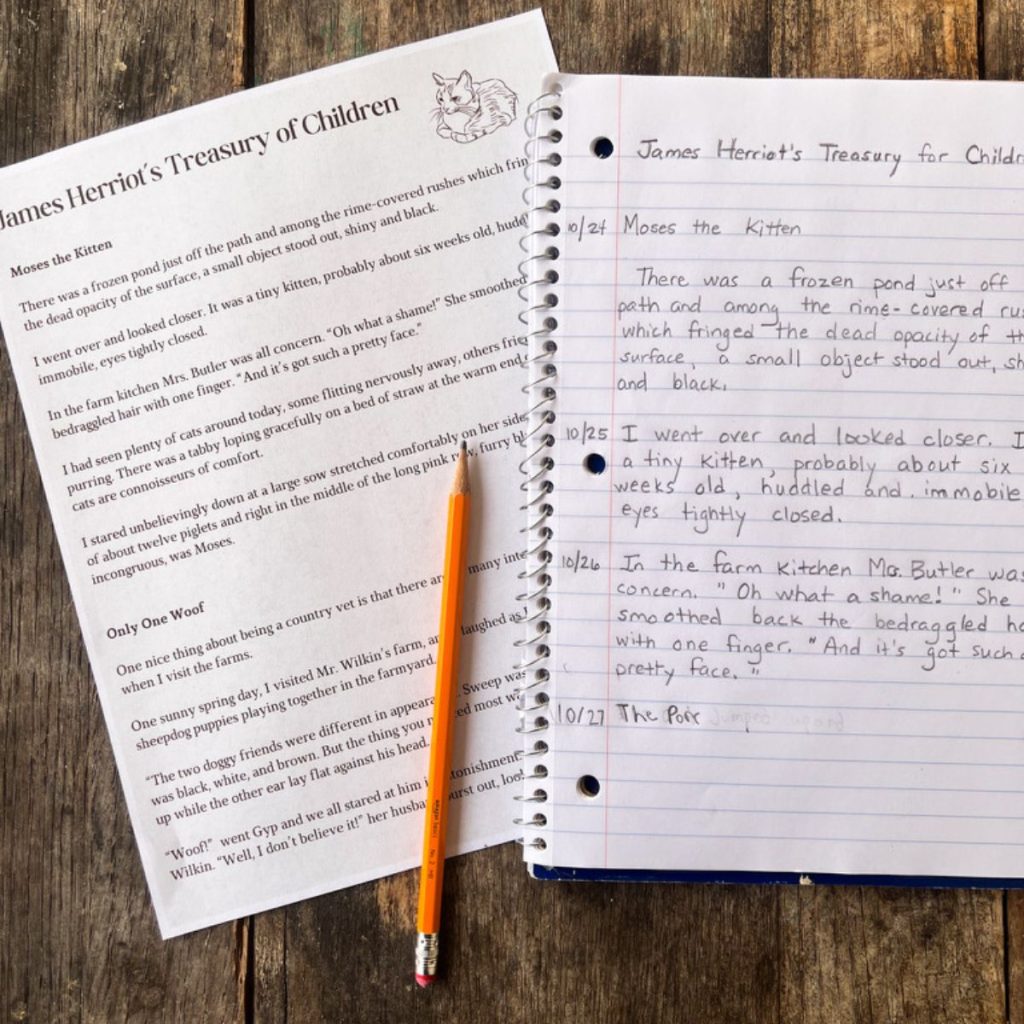 James Herriot's Treasury of Children
Moses the Kitten
There was a frozen pond just off the path and among the rime-covered rushes which
the dead opacity of the surface, a small object stood out, shiny and black.
I went over and looked closer. It was a tiny kitten, probably about six weeks old,
immobile, eyes tightly closed.
In the farm kitchen Mrs. Butler was all concern. "Oh what a shame!" She smoothed
bedraggled hair with one finger. "And it's got such a pretty face."
I had seen plenty of cats around today, some flitting nervously away, others
purring. There was a tabby loping gracefully on a bed of straw at the warm end
cats are connoisseurs of comfort.
I stared unbelievingly down at a large sow stretched comfortably on her side
of about twelve piglets and right in the middle of the long pink furry
incongruous, was Moses.
Only One Woof
One nice thing about being a country vet is that there many
when I visit the farms.
One sunny spring day, I visited Mr. Wilkin's farm, laughed as
sheepdog puppies playing together in the farmyard.
"The two doggy friends were different in Sweep was
was black, white, and brown. But the thing you most
up while the other ear lay flat against his head.
"Woof!" went Gyp and we all stared at him
Wilkin. "Well, I don't believe it!" her out,
James Herriot's Treasury for
10/24 Moses the Kitten
There was a frozen pond just off
path and among the rime-covered
which fringed the dead opacity of
surface, a small object stood out,
and black.
10/25 I went over and looked closer.
a tiny kitten, probably about six
weeks old, huddled and immobile
eyes tightly closed.
10/26 In the farm kitchen Mrs. Butler was
concern. "Oh what a shame!" She
smoothed back the bedraggled
with one finger. "And it's got such
pretty face."
10/27 The